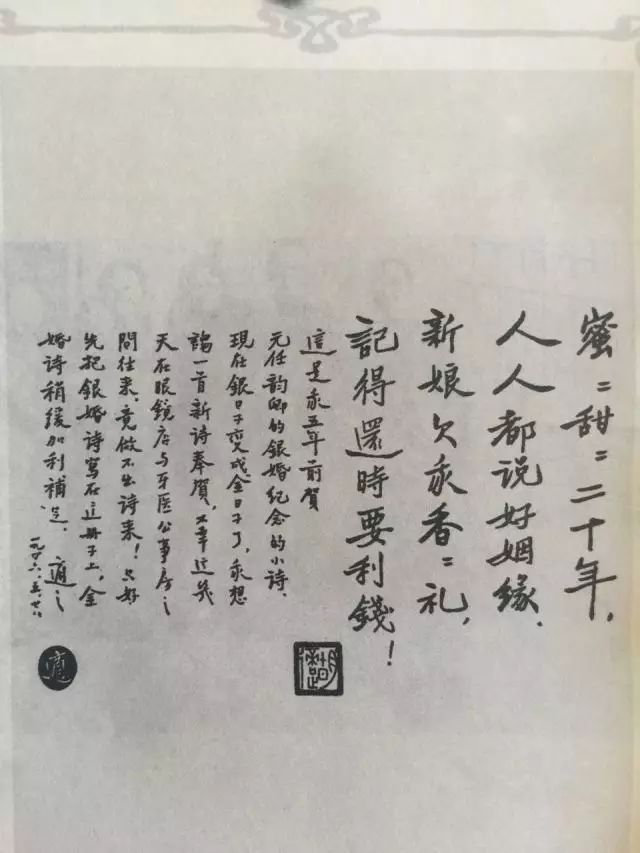 蜜〻甜〻二十年，
人人都说好姻缘．
新娘欠我香〻礼，
記得還時要利錢！
這是我五年前賀
元任韵卿的銀婚纪念的小诗．
現在銀日子变成金日子了，我想
謅一首新诗奉賀，不幸这幾
天在眼鏡店与牙医公事房之
間往来，竟做不出诗来！只好
先把銀婚诗寫在这册子上，金
婚诗稍缓加利補送． 適之
一九四六．五．廿八
適